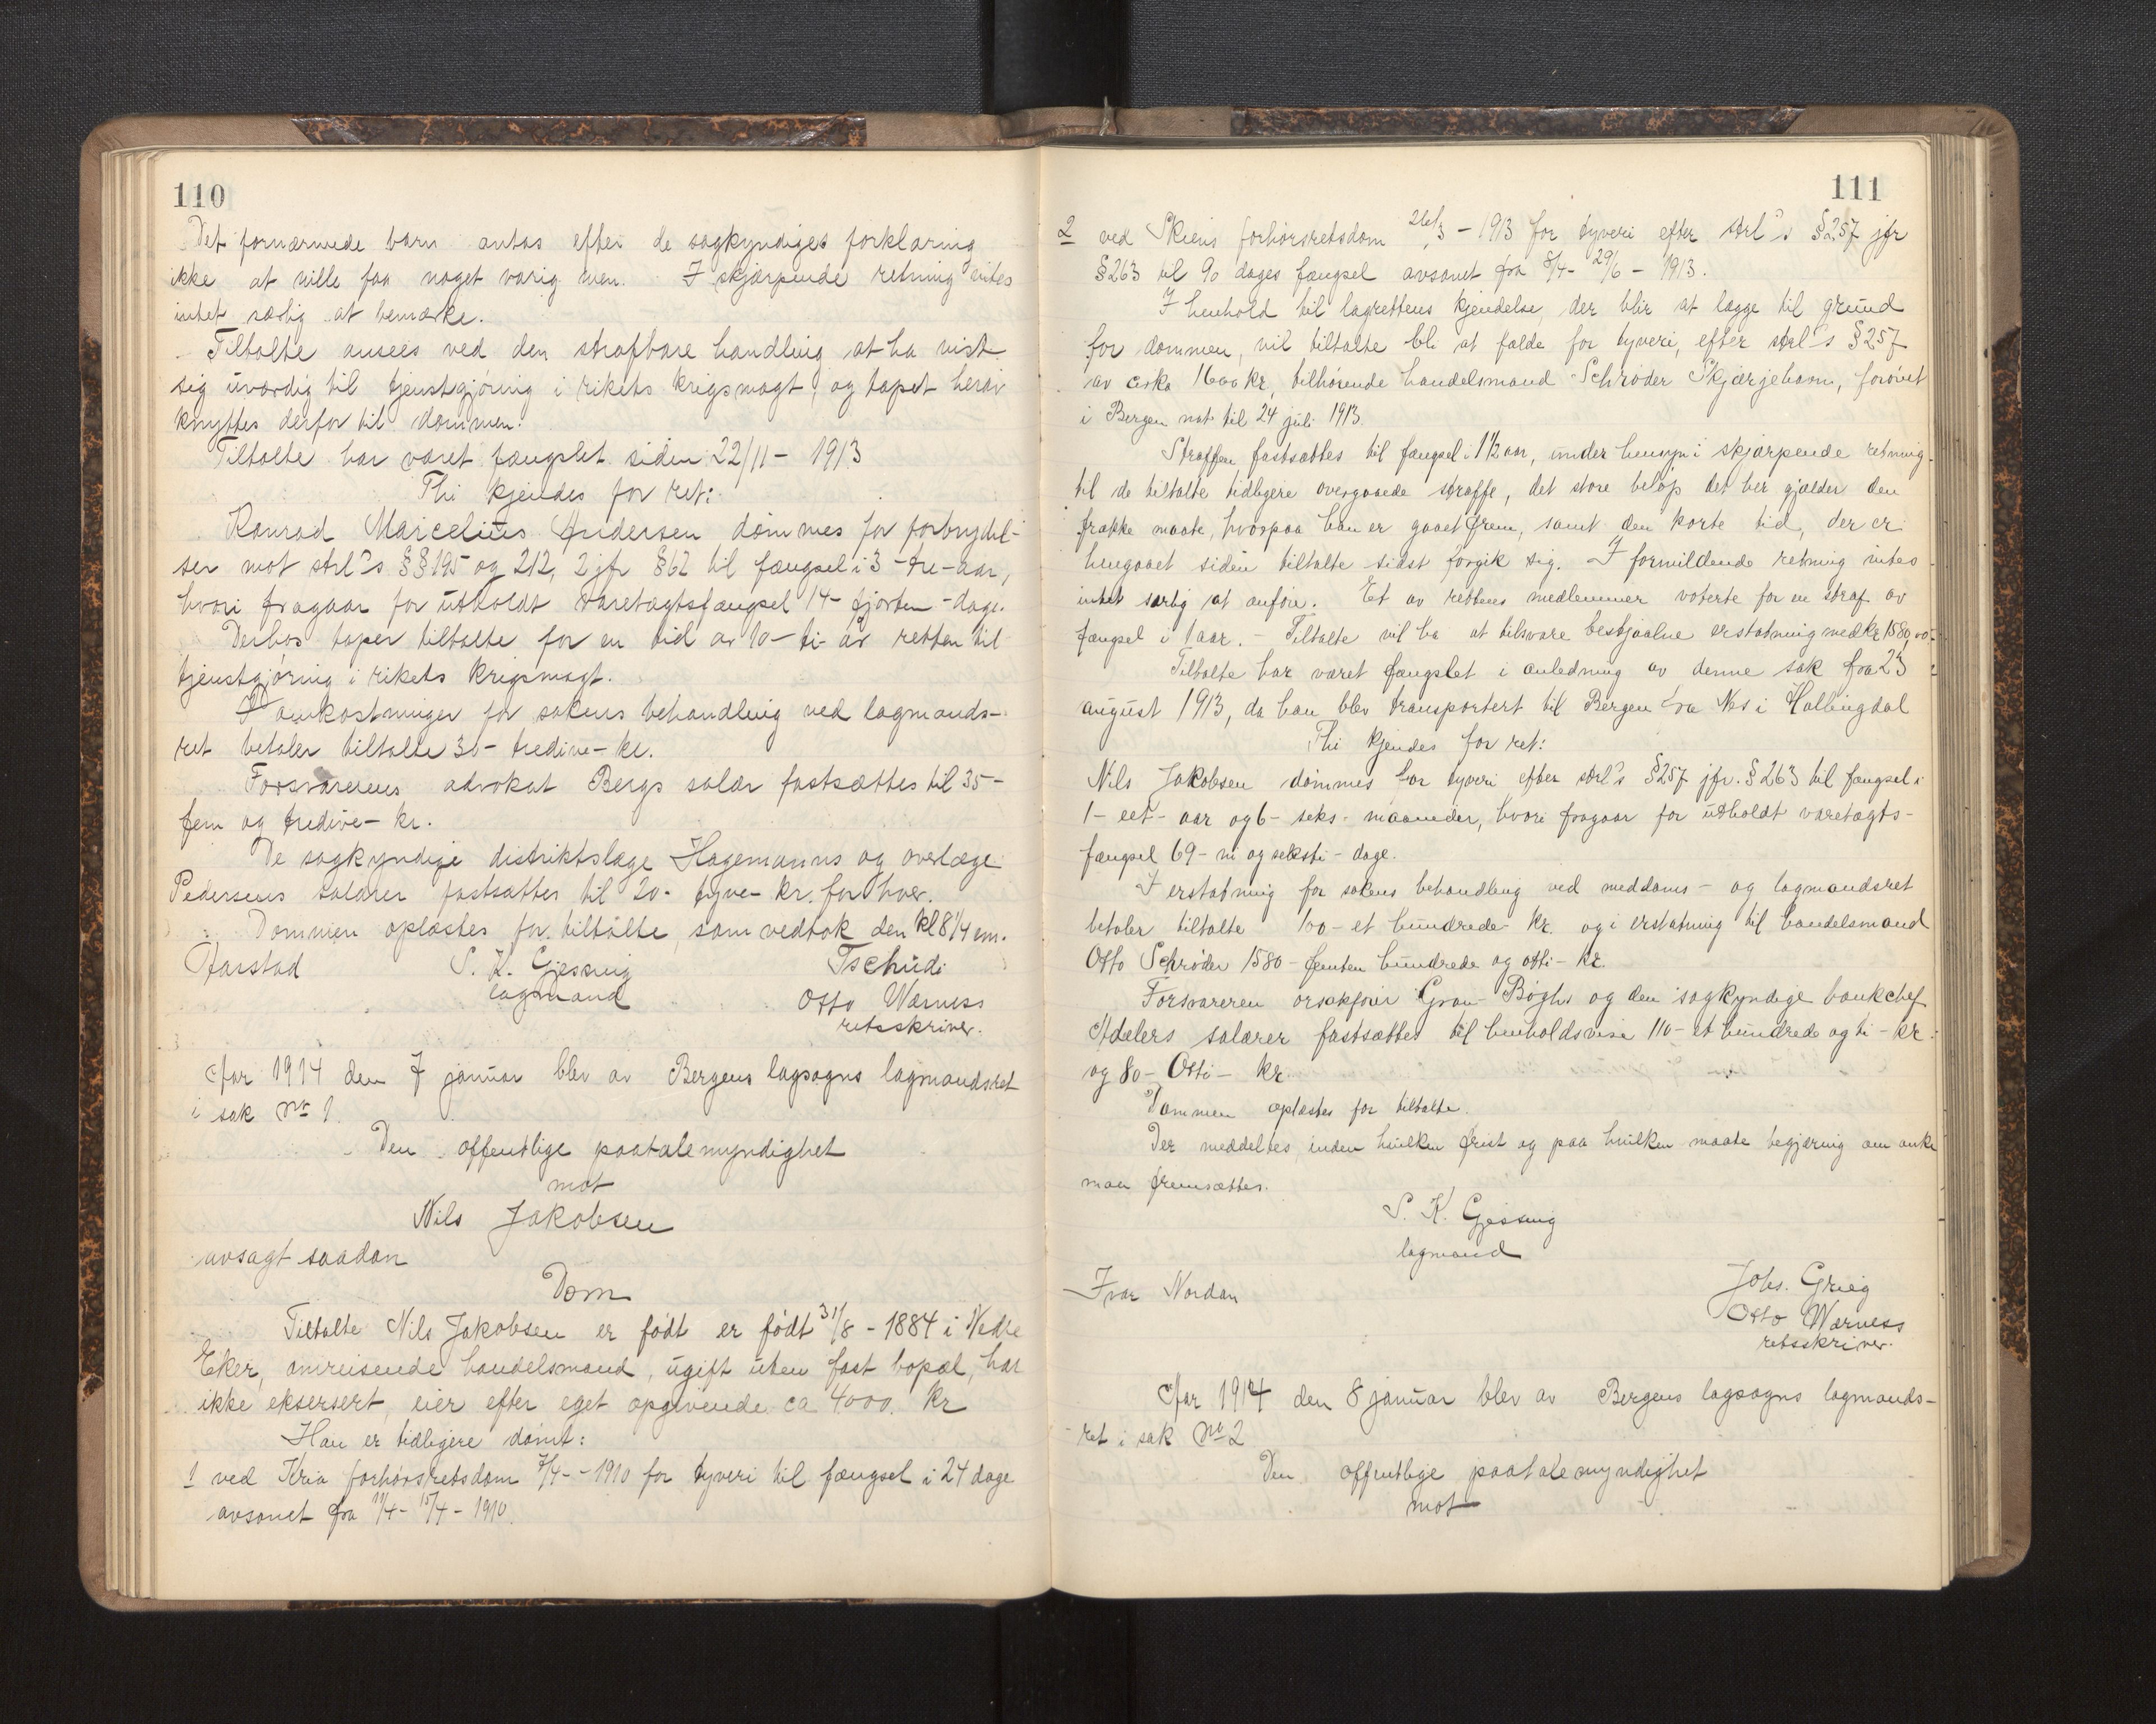 110
Det fornærmede barn antas efter de sagkyndiges forklaring
ikke at ville faa noget varig men. I skjærpende retning vites
intet særlig at bemærke.
Tiltalte ansees ved den strafbare handling at ha vist
sig uværdig til tjenstgjøring i rikets krigsmagt, og tapet herav
knyttes derfor til dommen.
Tiltalte har været fængslet siden 22/11 - 1913
Thi kjendes for ret:
Konrad Marcelius Andersen dømmes for forbrydel-
ser mot strl's §§ 195 og 212, 2 jfr § 62 til fængsel i 3 - tre - aar,
hvori fragaar for utholdt varetægtsfængsel 14 - fjorten - dage.
Derhos taper tiltalte for en tid av 10 - ti - år retten til
tjenstgjøring i rikets krigsmagt.
I omkostninger for sakens behandling ved lagmands-
ret betaler tiltalte 30 - tredive - kr.
Forsvarerens advokat Bergs salær fastsættes til 35 -
fem og tredive - kr.
De sagkyndige distriktslæge Hagemanns og overlæge
Pedersens salærer fastsættes til 20 - tyve - kr. for hver.
Dommen oplæstes for tiltalte, som vedtok den kl 8 1/4 em.
Farstad S. K. Gjessing Tschudi
lagmand Otto Wærness
retsskriver.
Aar 1914 den 7 januar blev av Bergens lagsogns lagmandsret
i sak Nr 1
Den offentlige paatalemyndighet
mot
Nils Jakobsen
avsagt saadan
Dom
Tiltalte Nils Jakobsen er født er født 31/8 - 1884 i Nedre
Eker, omreisende handelsmand, ugift uten fast bopæl, har
ikke eksersert, eier efter eget opgivende ca 4000 kr
Han er tidligere dømt:
1 ved Kria forhørsretsdom 7/4 - 1910 for tyveri til fængsel i 24 dage
avsonet fra 11/4 - 15/4 - 1910.
111
2 ved Skiens forhørsretsdom 26/3 - 1913 for tyveri efter strl's § 257 jfr
§ 263 til 90 dages fængsel avsonet fra 8/4 - 29/6 - 1913.
I henhold til lagrettens kjendelse, der blir at lægge til grund
for dommen, vil tiltalte bli at fælde for tyveri, efter strl's § 257
av cirka 1600 kr, tilhørende handelsmand Schrøder Skjærjehavn, forøvet
i Bergen nat til 24 juli 1913.
Straffen fastsættes til fængsel i 1 1/2 aar, under hensyn i skjærpende retning
til de tiltalte tidligere overgaaede straffe, det store beløp det her gjælder den
frække maate, hvorpaa han er gaaet frem, samt den korte tid, der er
hengaaet siden tiltalte sidst forgik sig. I formildende retning vites
intet særlig at anføre. Et av rettens medlemmer voterte for en straf av
fængsel i 1 aar. - Tiltalte vil ha at tilsvare bestjaalne erstatning med kr 1580,00.
Tiltalte har været fængslet i anledning av denne sak fra 23
august 1913, da han blev transportert til Bergen fra Nes i Hallingdal
Thi kjendes for ret:
Nils Jakobsen dømmes for tyveri efter strl's § 257 jfr. § 263 til fængsel i
1 - eet - aar og 6 - seks - maaneder, hvori fragaar for utholdt varetægts-
fængsel 69 - ni og seksti - dage.
I erstatning for sakens behandling ved meddoms - og lagmandsret
betaler tiltalte 100 - et hundrede - kr. og i erstatning til handelsmand
Otto Schrøder 1580 - femten hundrede og otti - kr.
Forsvareren orsakfører Gran Bøghs og den sagkyndige bankchef
Adelers salærer fastsættes til henholdsvis 110 - et hundrede og ti - kr
og 80 - Otti - kr.
Dommen oplæstes for tiltalte.
Der meddeltes, inden hvilken frist og paa hvilken maate begjæring om anke
maa fremsættes.
S. K. Gjessing
lagmand
Ivar Nordan Johs. Grieg
Otto Wærness
retsskriver.
Aar 1914 den 8 januar blev av Bergens lagsogns lagmands-
ret i sak Nr 2
Den offentlige paatalemyndighet
mot